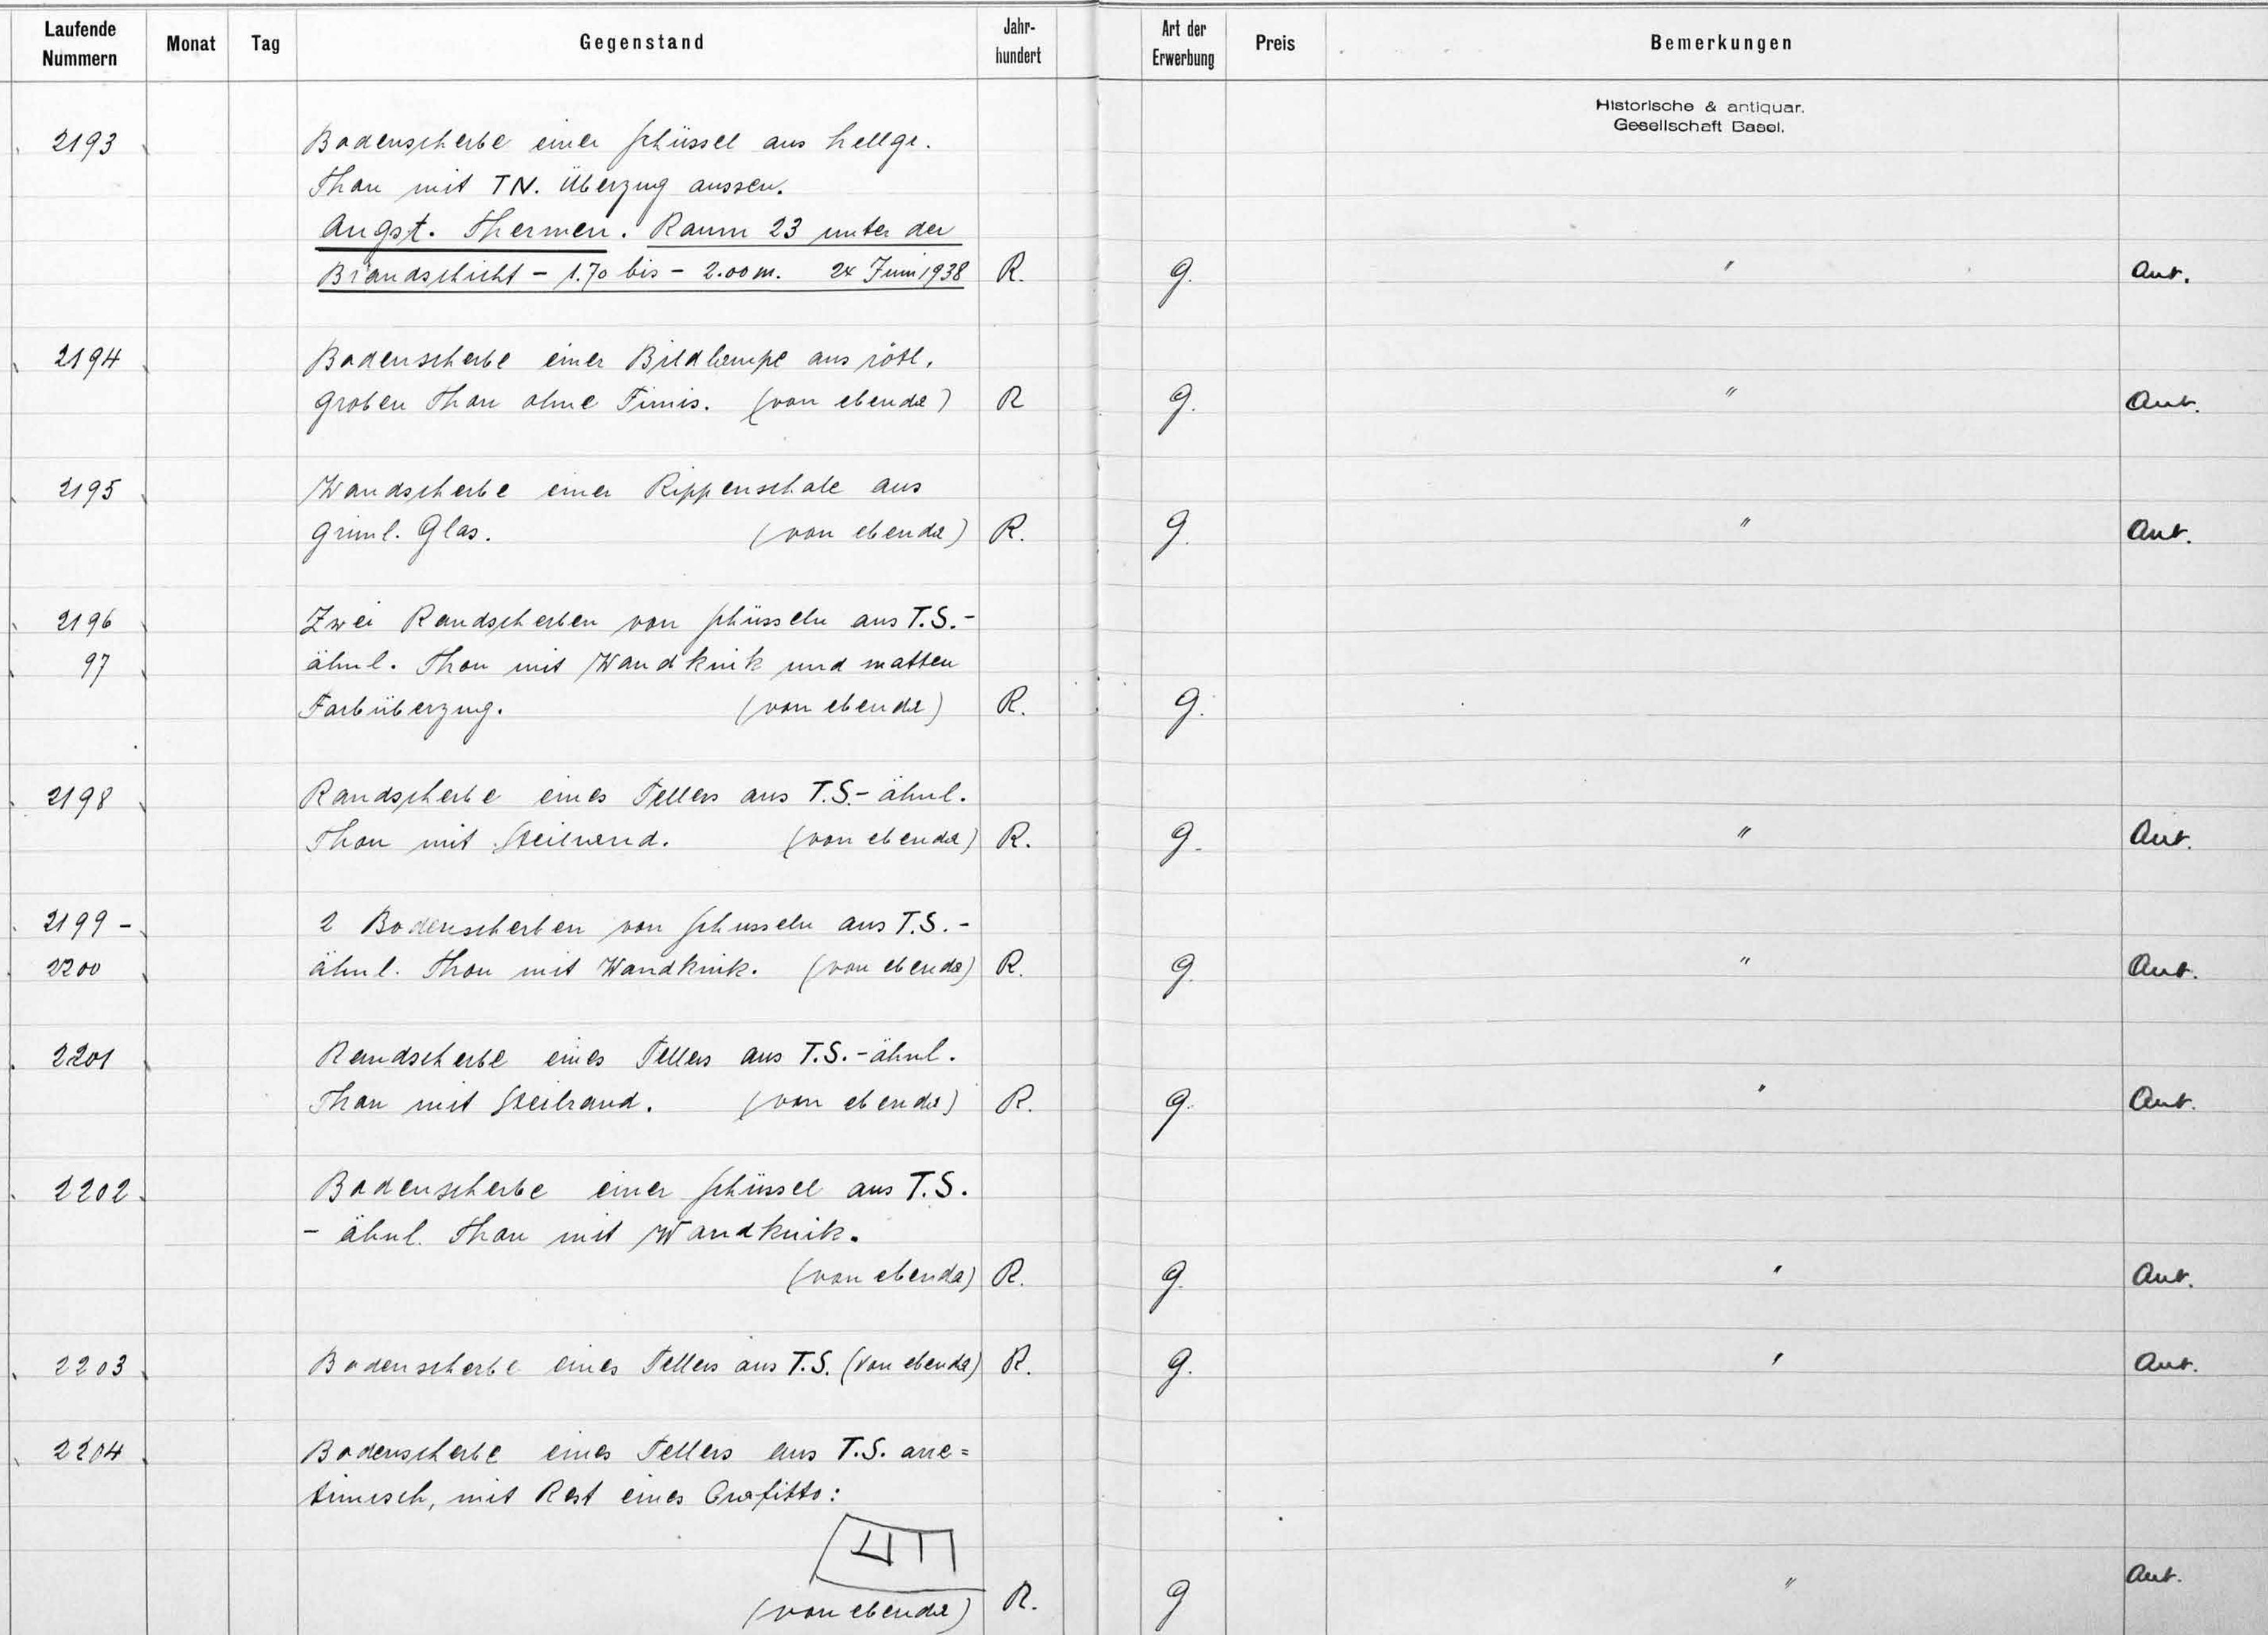 Laufende Nummern Monat Tag Gegenstand Jahr-hundert Art der Erwerbung Preis Bemerkungen
Historische & antiquar.
Gesellschaft Basel.
2193 Bodenscherbe einer Schüssel aus hellgr.
Thon mit TN. Überzug aussen.
Augst. Thermen. Raum 23 unter der
Brandschicht - 1.70 bis - 2.00 m. 24 Juni 1938 R. g. " Ant.
2194 Bodenscherbe einer Bildlampe aus rötl.
groben Thon ohne Firnis. (von ebenda) R g. " Ant.
2195 Wandscherbe einer Rippenschale aus
grünl. Glas. (von ebenda) R. g. " Ant.
2196 Zwei Randscherben von Schüsseln aus T.S.-
97 ähnl. Thon mit Wandknik und matten
Farbüberzug. (von ebenda) R. g.
2198 Randscherbe eines Tellers aus T.S.-ähnl.
Thon mit Steilwand. (von ebenda) R. g. " Ant.
2199 - 2 Bodenscherben von Schusseln aus T.S.-
2200 ähnl. Thon mit Wandknik. (von ebenda) R. g. " Ant.
2201 Randscherbe eines Tellers aus T.S.-ähnl.
Thon mit Steilrand. (von ebenda) R. g. " Ant.
2202. Bodenscherbe einer Schüssel aus T.S.
- ähnl. Thon mit Wandknik.
(von ebenda) R. g. " Ant.
2203 Bodenscherbe eines Tellers aus T.S. (von ebenda) R. g. " Ant.
2204 Bodenscherbe eines Tellers aus T.S. arre=
tinisch, mit Rest eines Grafitto:
(von ebenda) R. g " Ant.